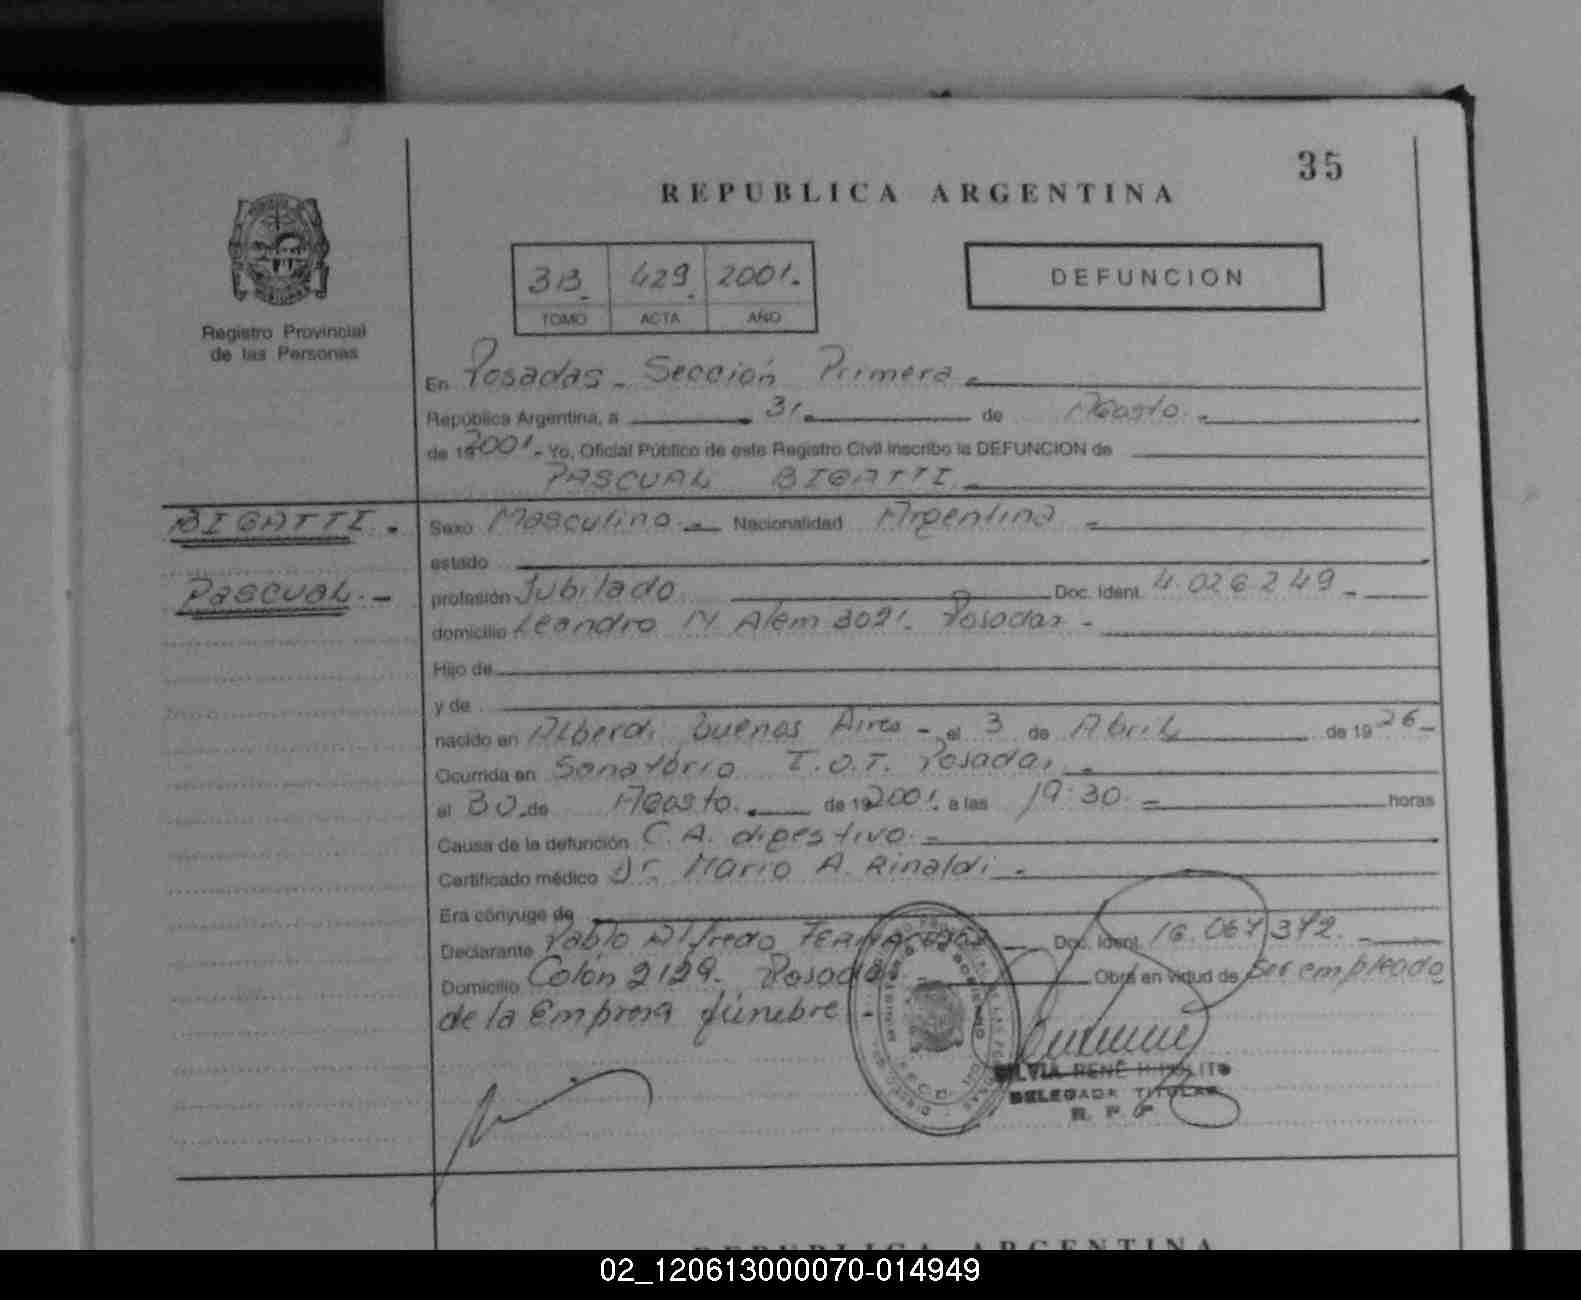 35
REPUBLICA ARGENTINA
3B. 429. 2001.
TOMO ACTA AÑO
DEFUNCION
Registro Provincial
de las Personas
En Posadas - Sección Primera
República Argentina, a 31 de Agosto.
de 19 2001. - Yo, Oficial Público de este Registro Civil inscribo la DEFUNCION de
PASCUAL BIGATTI.
BIGATTI.
PASCUAL. -
Sexo Masculino. Nacionalidad Argentina
estado
profesión Jubilado Doc. Ident. 4.026.249
domicilio Leandro N Alem 3021. Posadas -
Hijo de
y de
nacido en Alberdi Buenos Aires - el 3 de Abril de 19 26 -
Ocurrida en Sanatorio I.O.T. Posadas
el 30 de Agosto. de 19 2001. a las 19:30. horas
Causa de la defunción C.A. digestivo.
Certificado médico Dr. Mario A. Rinaldi
Era cónyuge de
Declarante Pablo Alfredo Doc. Ident. 16.067.372.
Domicilio Colón 2129. Posadas Obra en virtud de ser empleado
de la Empresa fúnebre -
SILVIA RENÉ HIPOLITO
DELEGADA TITULAR
R. P. P
REPUBLICA ARGENTINA
02_120613000070-014949